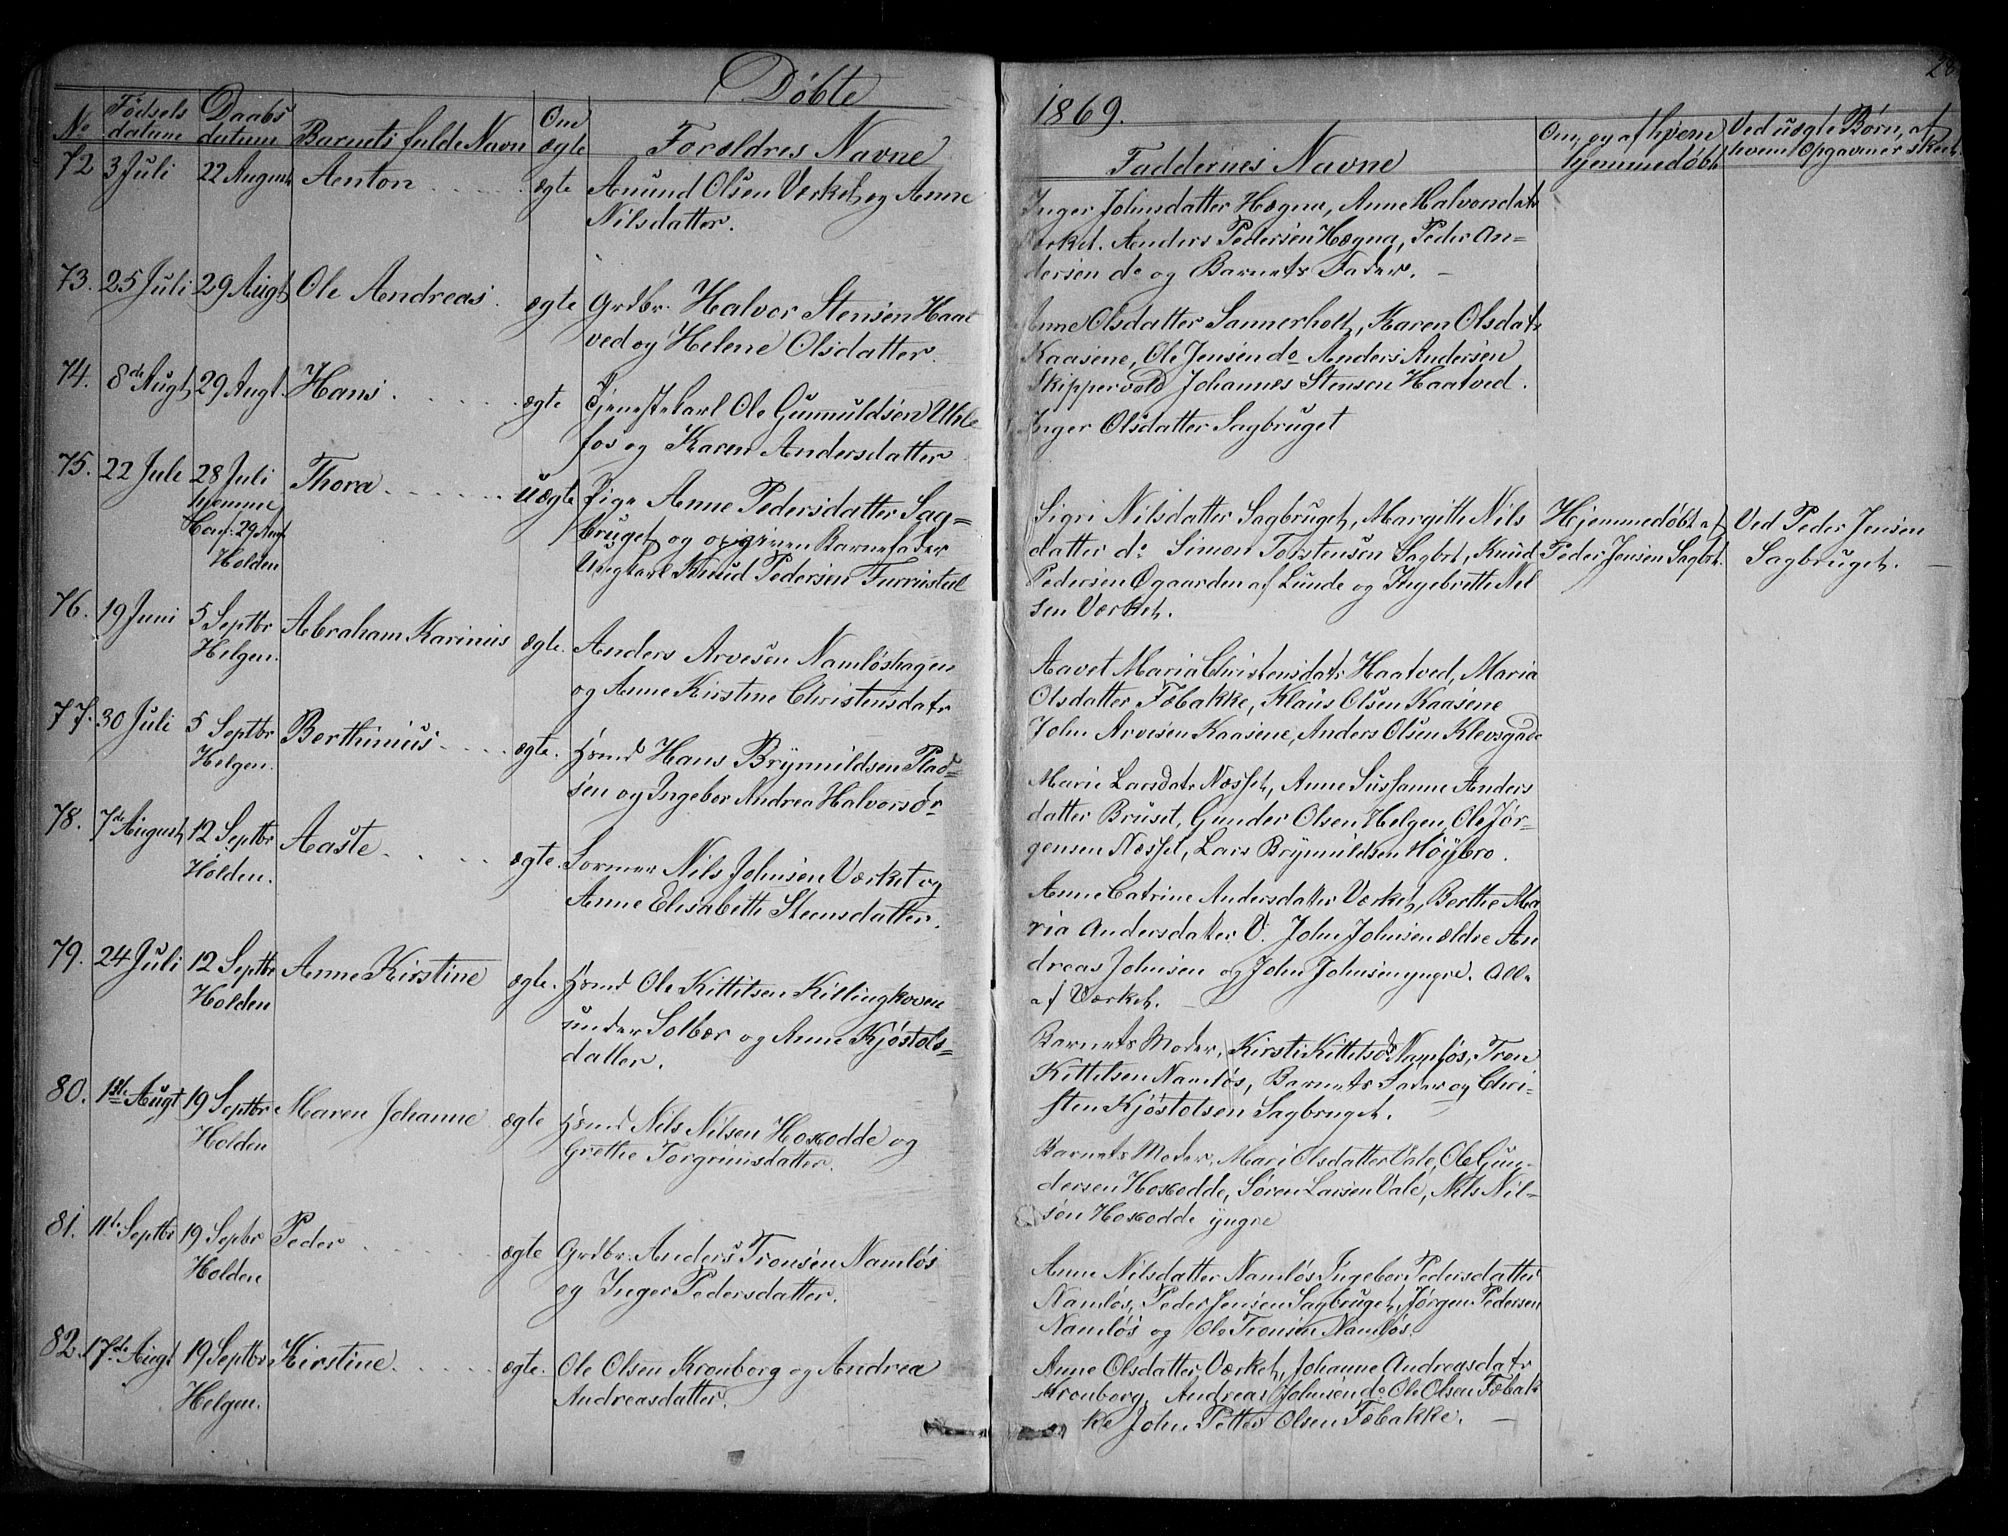 Döbte
1869.
28
No
Födsels datum
Daabs datum
Barnets fulde Navn
Om ægte
Foræeldres Navne
Faddernes Navne
Om, og af hvem hjemmedøbt
Ved uægte Børn, af hvem Opgavener skeet
72 3 Juli 22 August Anton ægte Amund Olsen Værket og Anne
Nilsdatter.
Inger Johnsdatter Hægna, Anne Halvorsdatr
Værket. Anders Pedersen Hægna, Peder An=
dersen do og Barnets Fader.
73. 25 Juli 29 Augt Ole Andreas. ægte Grdbr. Halvor Stensen Haat
ved og Helene Olsdatter.
Anne Olsdatter Sannerholt, Karen Olsdatr
Kaasene, Ole Jensen do Anders Andersen
Skippervold Johannes Stensen Haatved.
Inger Olsdatter Sagbruget
74. 8de Augt 29 Augt. Hans. ægte Tjenestekarl Ole Gunnuldsen Uhle
fos og Karen Andersdatter
75. 22 Juli 28 Juli Thora uægte Pige Anne Pedersdatter Sag=
hjemme
Conf. 29 Aug
Holden
bruget og opgiven Barnefader
Ungkarl Knud Pedersen Furrustul
Sigri Nilsdatter Sagbruget, Margitte Nils
datter do Simon Torstensen Sagbrt, Knud
Pedersen Ogaarden af Lunde og Ingebrette Nil
sen Værket.
Hjemmedøbt af
Peder Jensen Sagbrt.
Ved Peder Jensen
Sagbruget.
76. 19 Juni 5 Septbr Abraham Karinius ægte. Anders Arvesen Namløshagen
Helgen.
og Anne Kirstine Christensdatr
Aavet Maria Christensdatr Haatved, Maria
Olsdatter Fæbakke, Klaus Olsen Kaasene
John Arvesen Kaasene, Anders Olsen Klevsgade
77. 30 Juli 5 Septbr Berthinius ægte. Hsmd Hans Brynnildsen Plad=
Helgen.
sen og Ingebor Andrea Halvorsdr
Marie Larsdatr Næsset, Anne Sussanne Anders
datter Bruset, Gunder Olsen Helgen, Ole Jör=
gensen Næsset, Lars Brynnildsen Höybro.
78. 7de August 12 Septbr Aaste ægte. Formер Nils Johnsen Værket og
Holden.
Anne Elisabeth Steensdatter.
Anne Catrine Andersdatter Værket, Berthe Ma
ria Andersdatter V. John Johnsen ældre An
dreas Johnsen og John Johnsen yngre. Alle
af Værket.
79. 24 Juli 12 Septbr Anne Kirstine ægte. Hsmd Ole Kittilsen Killingkoven
Holden
under Solbær og Anne Kjøstols=
datter.
Barnets Moder, Kirsti Kittelsdr Namløs, Tron
Kittilsen Namløs, Barnets Fader og Chri-
sten Kjøstolsen Sagbruget.
80. 1ste Augt 19 Septbr Maren Johanne ægte Hsmd Nils Nilsen Hoxodde og
Holden
Grethe Torgrimsdatter.
Barnets Moder, Mari Olsdatter Vale, Ole Gun-
dersen Hoxodde, Søren Larsen Vale, Nils Nil-
sen Hoxodde yngre
81. 11te Septbr 19 Sepbr Peder ægte Grdbr. Anders Tronsen Namløs
Holden
og Inger Pedersdatter.
Anne Nilsdatter Namløs Ingebor Pedersdatter
Namløs, Peder Jensen Sagbruget, Jørgen Pedersen
Namløs og Ole Tronsen Namløs.
82. 17de Augt 19 Septbr Kirstine ægte. Ole Olsen Kronborg og Andrea
Helgen.
Andreasdatter.
Anne Olsdatter Værket, Johanne Andreasdatr
Kronborg, Andreas Johnsen do Ole Olsen Fæbak
ke John Petter Olsen Fæbakke.